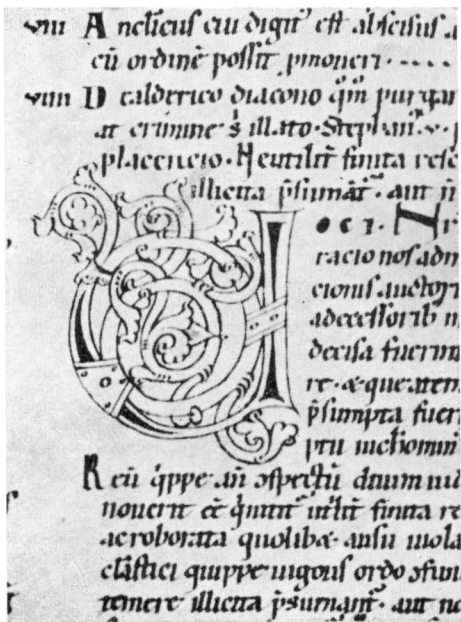 viii A nelicus cui digit᷒ est abscisus a
cū ordinē possit pmoneri · - - - -
viiii D e alderico diacono qm̄ purgar
at crimine s̄ illato · Stephan᷒ · v · p
placencio · Neutilit̄ finita resc
illicita p̄sumāt᷒ · aut n̄
oct · Ir
racio nos adm
cionis auctori
adecessorib n
decisa fuerint
re · æque atem
p̄sumpta fuer
ptu inchomin
R eū q̇ppe an̄ ↄspectū diuum iud
nouerit cē utilit̄ finita re
ac roborata quolibæ · ausu uiola
clastici quippe uigoris ordo ↄfun
temere illicita p̄sumant᷒ · aut no